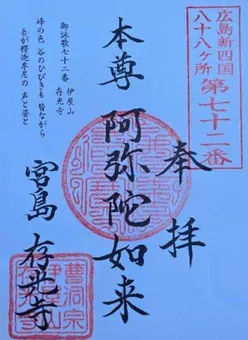 広島新四国
八十八ヶ所
第七十二番
奉拝
本尊 阿弥陀如来
御詠歌七十二番 伊屋山
存光寺
峰の色 谷のひびきも 皆ながら
吾が釈迦牟尼の 声と姿と
宮島 存光寺
曹洞宗